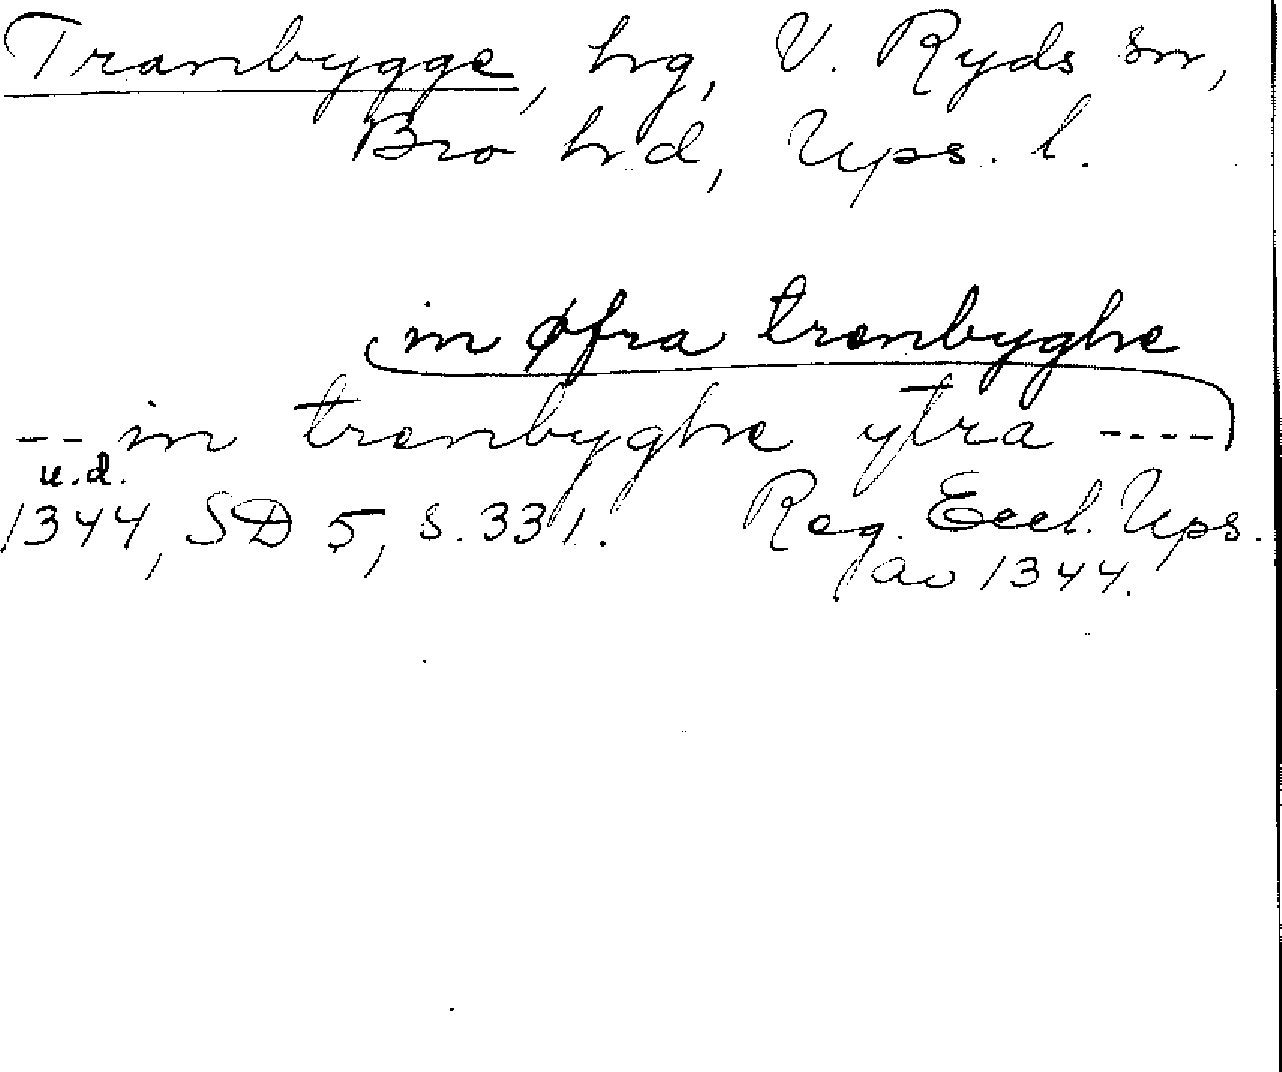 Tranbygge, hg, V. Ryds sn,
Bro hd, Upps. l.
in øfra trenbyghe
-- in trenbyghe ytra ----
u.d.
1344, SD 5, s. 331. Reg. Eccl. Ups.
av 1344.